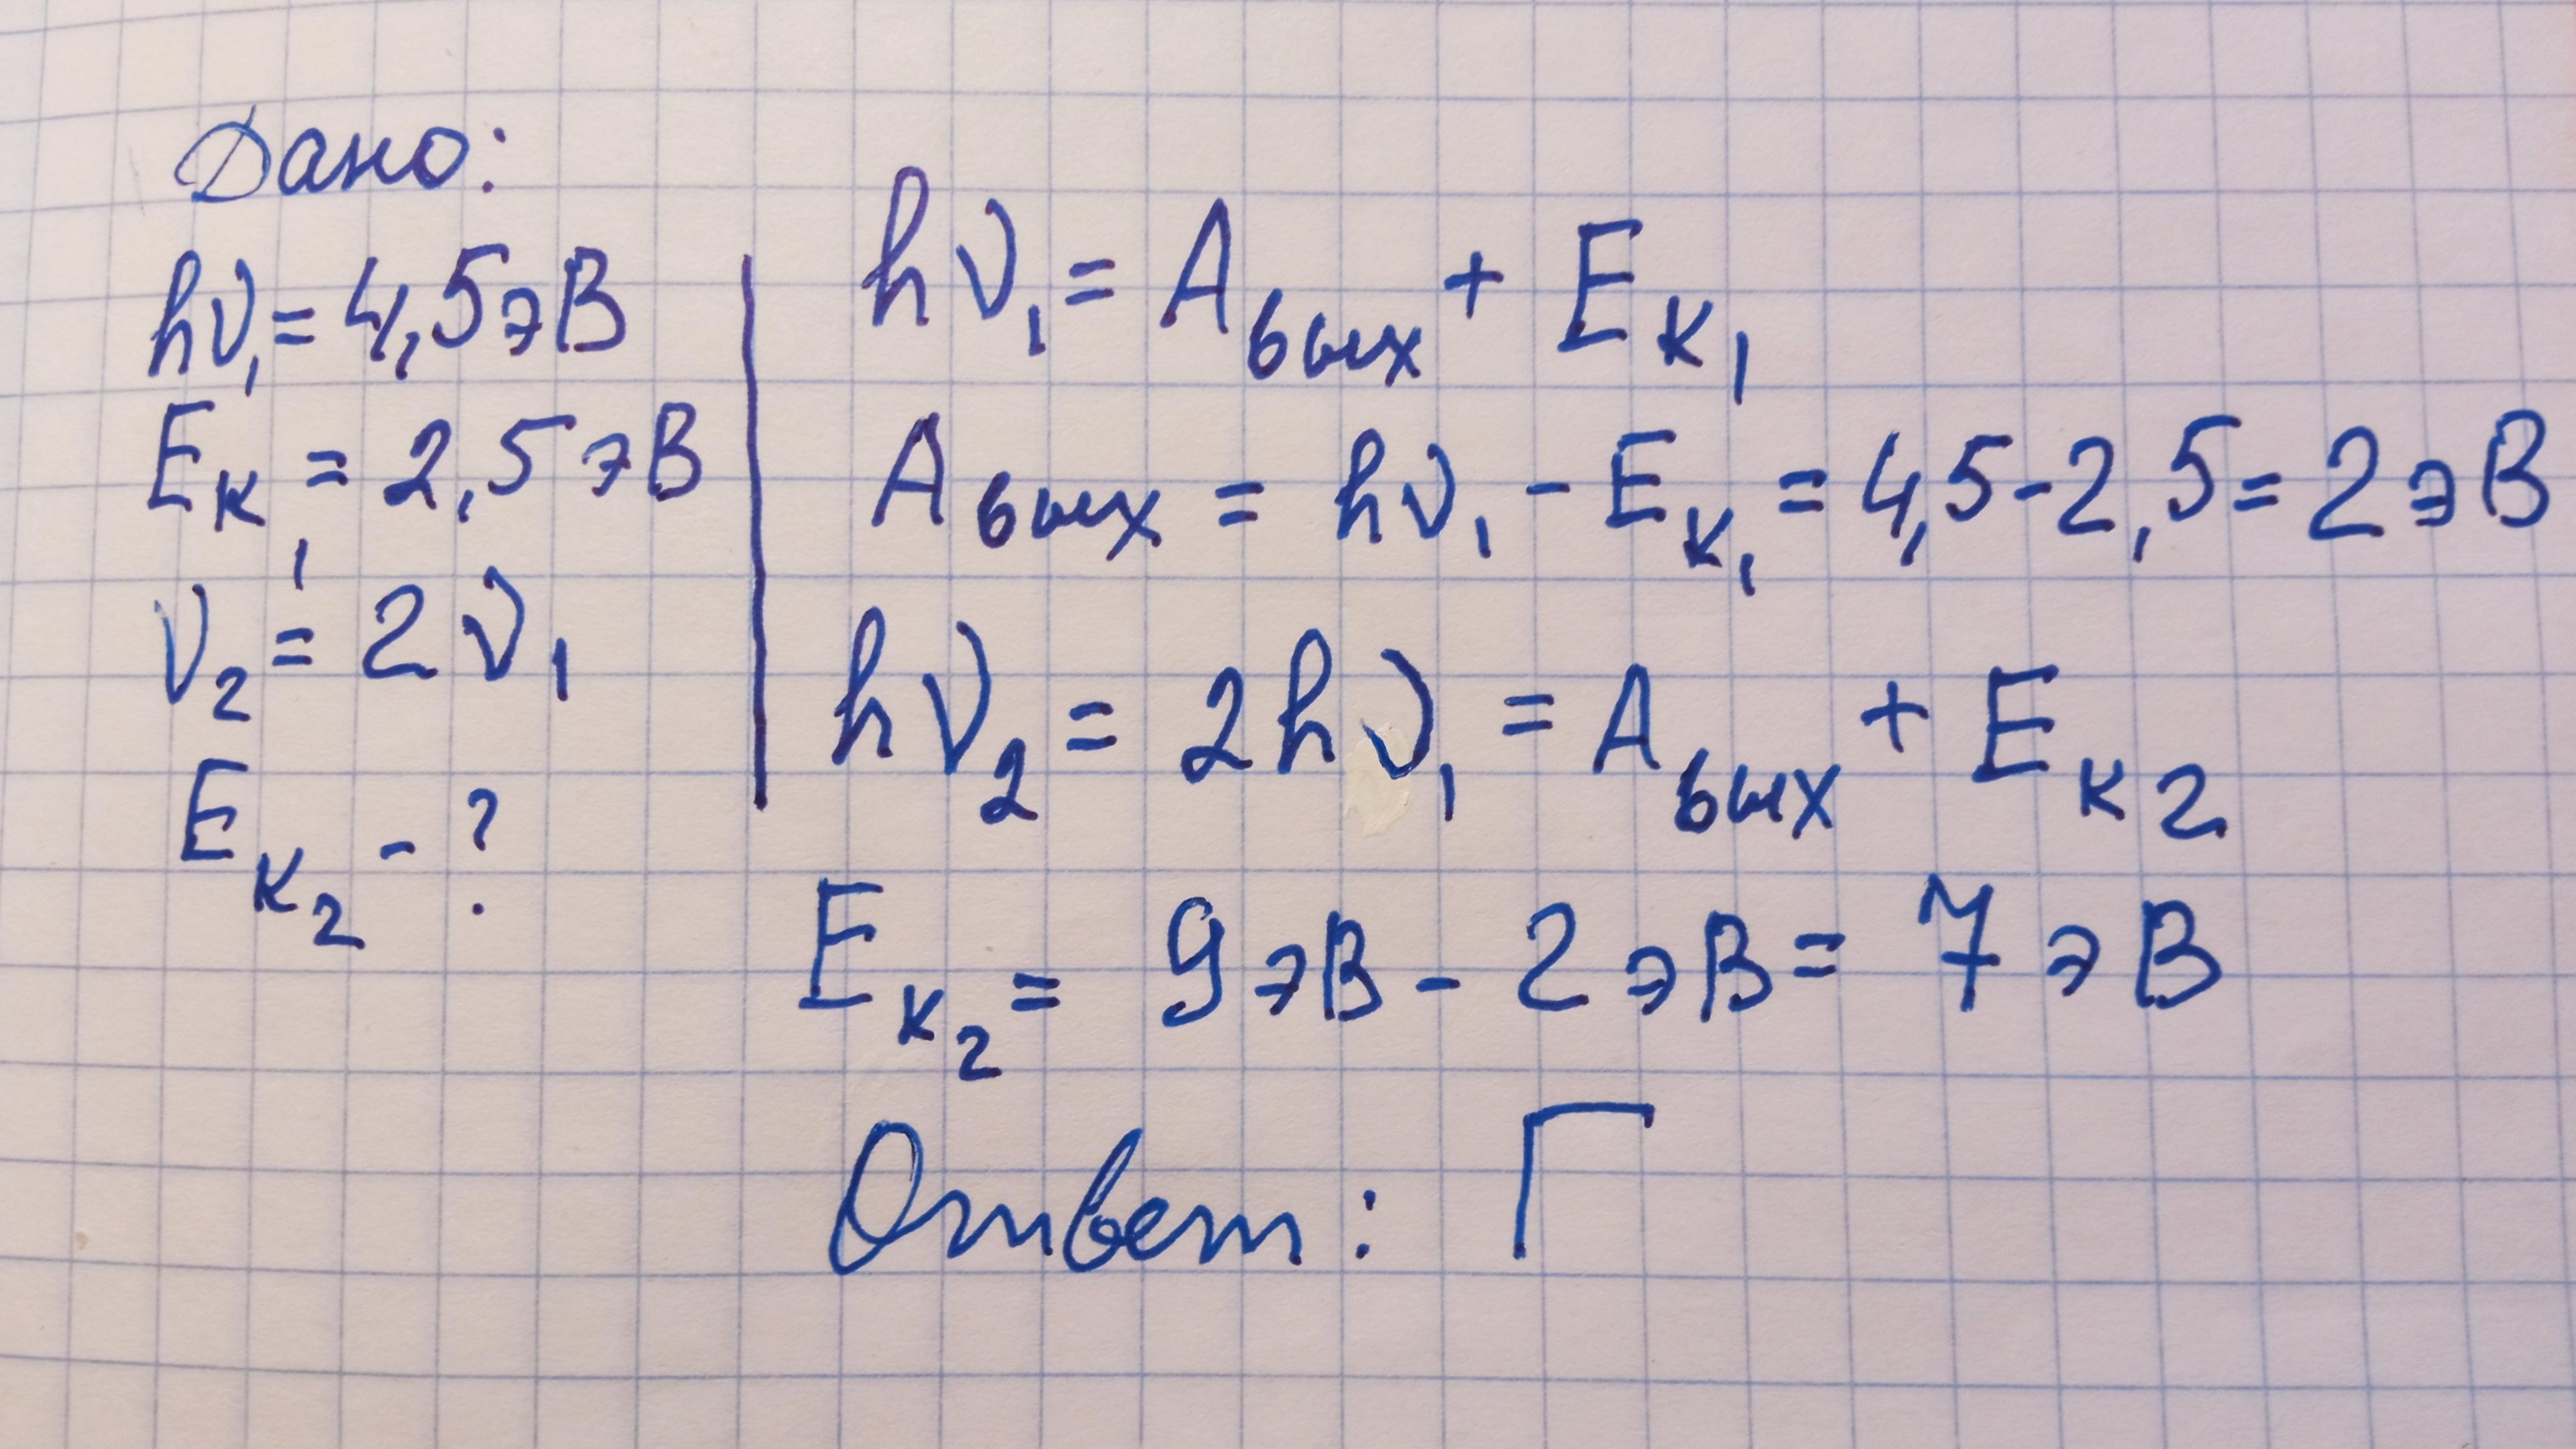 Дано:
hν₁ = 4,5 эВ
Eк₁ = 2,5 эВ
ν₂ = 2ν₁
Eк₂ - ?
hν₁ = Aвых + Eк₁
Aвых = hν₁ - Eк₁ = 4,5 - 2,5 = 2 эВ
hν₂ = 2hν₁ = Aвых + Eк₂
Eк₂ = 9 эВ - 2 эВ = 7 эВ
Ответ: Г